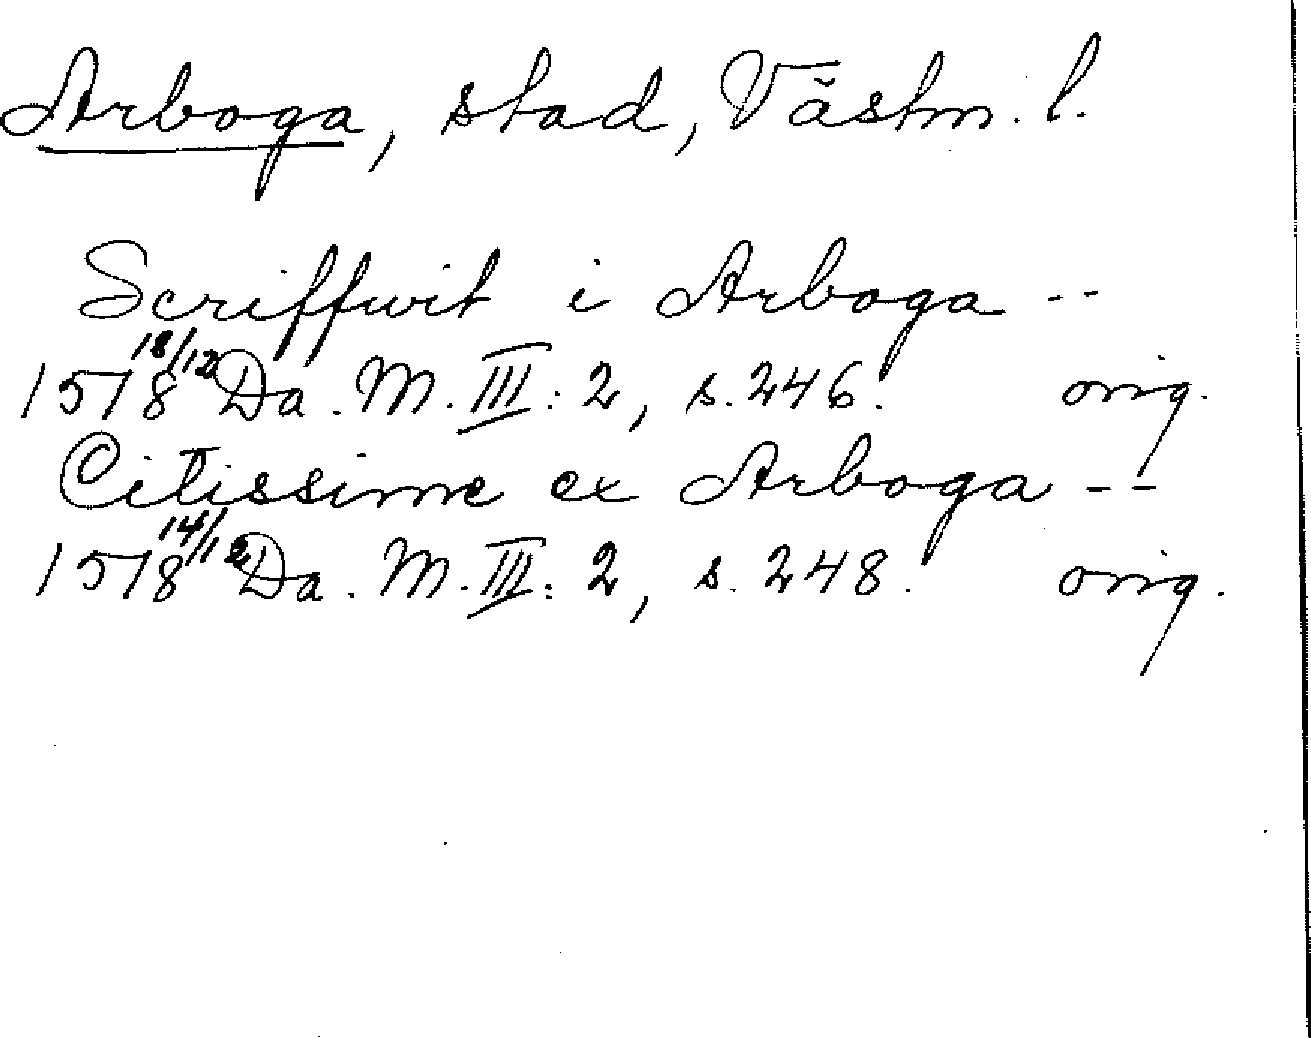 Arboga, stad, Västm. l.
Scriffwit i Arboga --
1578 18/12 Da. M. III: 2, s. 246. orig.
Citissime ex Arboga --
1578 14/12 Da. M. III: 2, s. 248. orig.